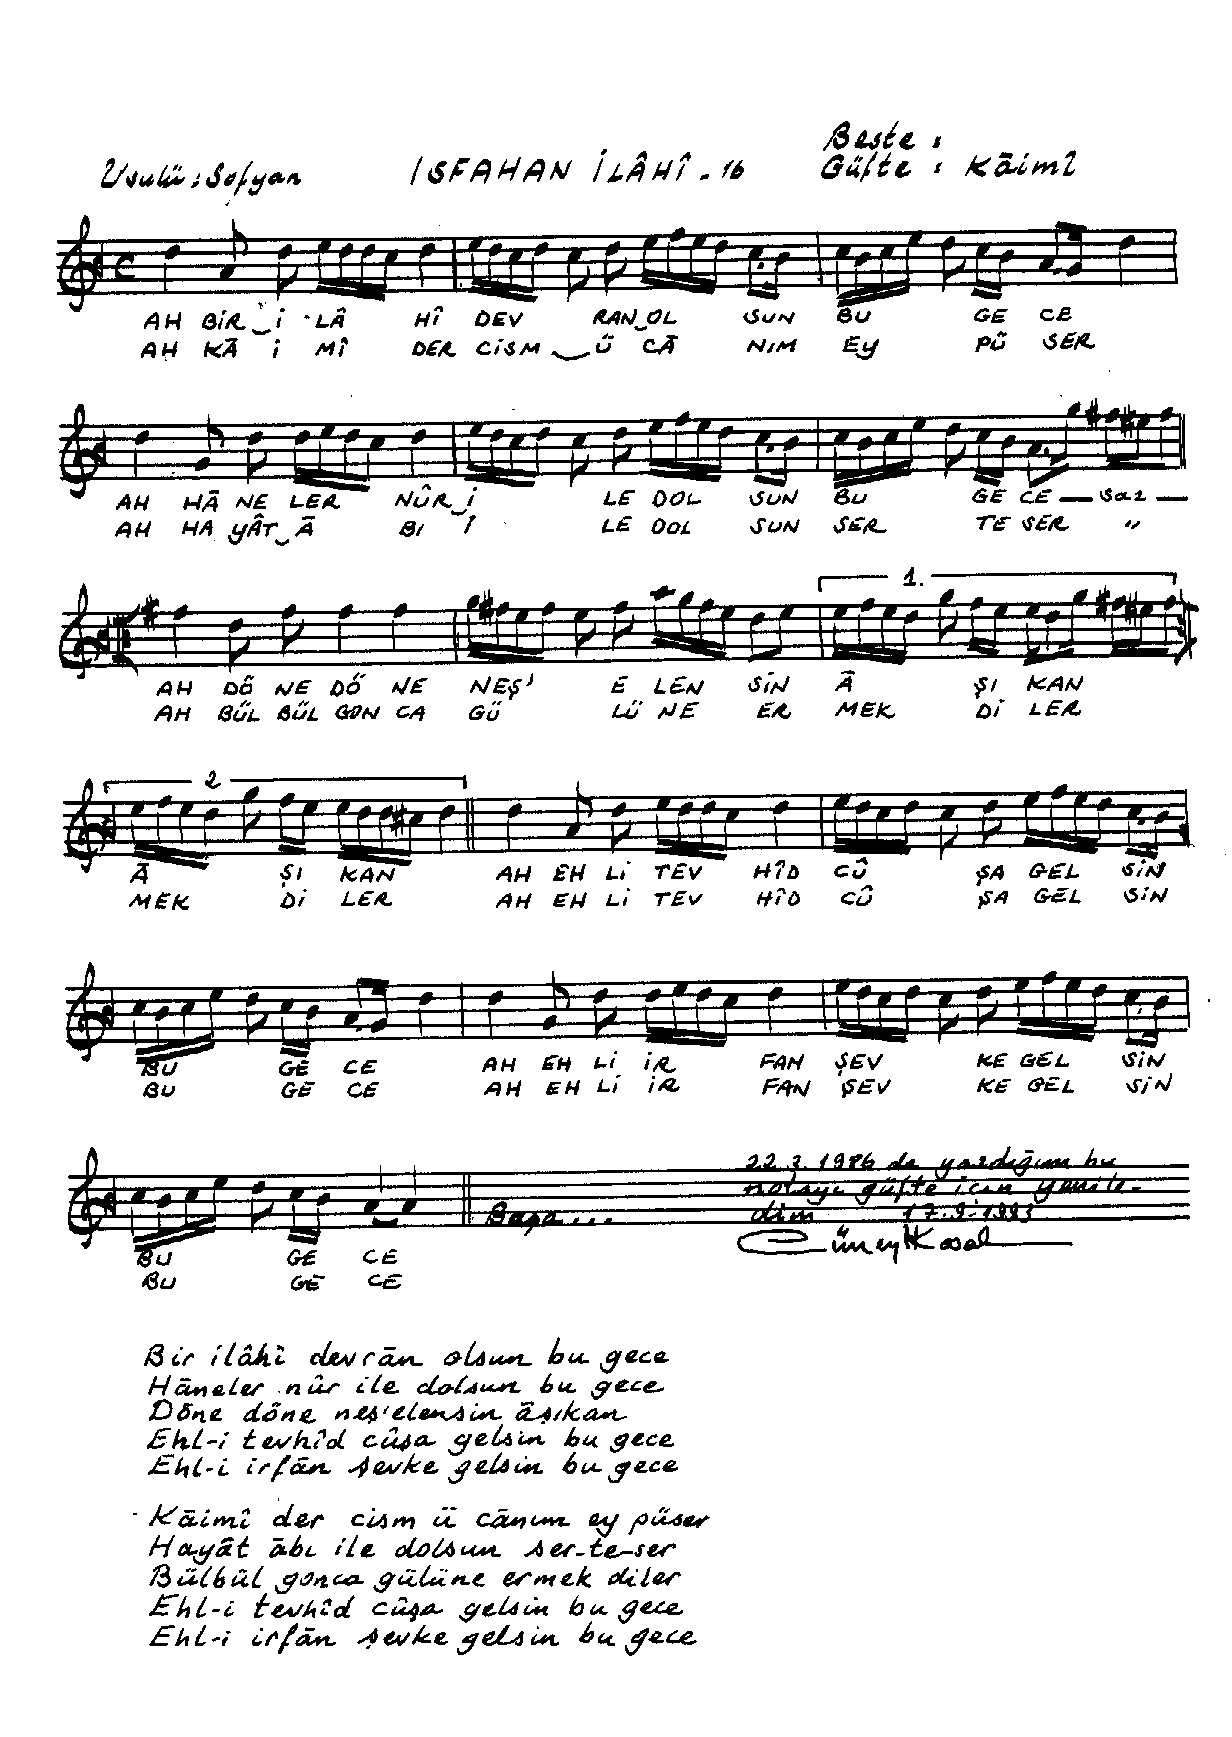 Beste :
Usulü : Sofyan ISFAHAN İLÂHÎ - 16 Güfte : Kāimî
AH BİR İ LÂ HÎ DEV RAN OL SUN BU GE CE
AH KĀ İ MÎ DER CİSM Ü CĀ NIM EY PÜ SER
AH HĀ NE LER NÛR İ LE DOL SUN BU GE CE saz
AH HA YÂT Ā BI Î LE DOL SUN SER TE SER "
1.
AH DÖ NE DÖ NE NEŞ' E LEN SİN Ā ŞI KAN
AH BÜL BÜL GON CA GÜ LÜ NE ER MEK Dİ LER
2
Ā ŞI KAN AH EH Lİ TEV HÎD CÛ ŞA GEL SİN
MEK Dİ LER AH EH Lİ TEV HÎD CÛ ŞA GEL SİN
BU GE CE AH EH Lİ İR FAN ŞEV KE GEL SİN
BU GE CE AH EH Lİ İR FAN ŞEV KE GEL SİN
22.3.1986 da yazdığım bu
notayı güfte için yenile-
Başa... dim
Güney Kosal
BU GE CE
BU GE CE
Bir ilâhî devrān olsun bu gece
Hāneler nûr ile dolsun bu gece
Döne döne neş'elensin āşıkan
Ehl-i tevhîd cûşa gelsin bu gece
Ehl-i irfān şevke gelsin bu gece
Kāimî der cism ü cānım ey püser
Hayât ābı ile dolsun ser-te-ser
Bülbül gonca gülüne ermek diler
Ehl-i tevhîd cûşa gelsin bu gece
Ehl-i irfān şevke gelsin bu gece